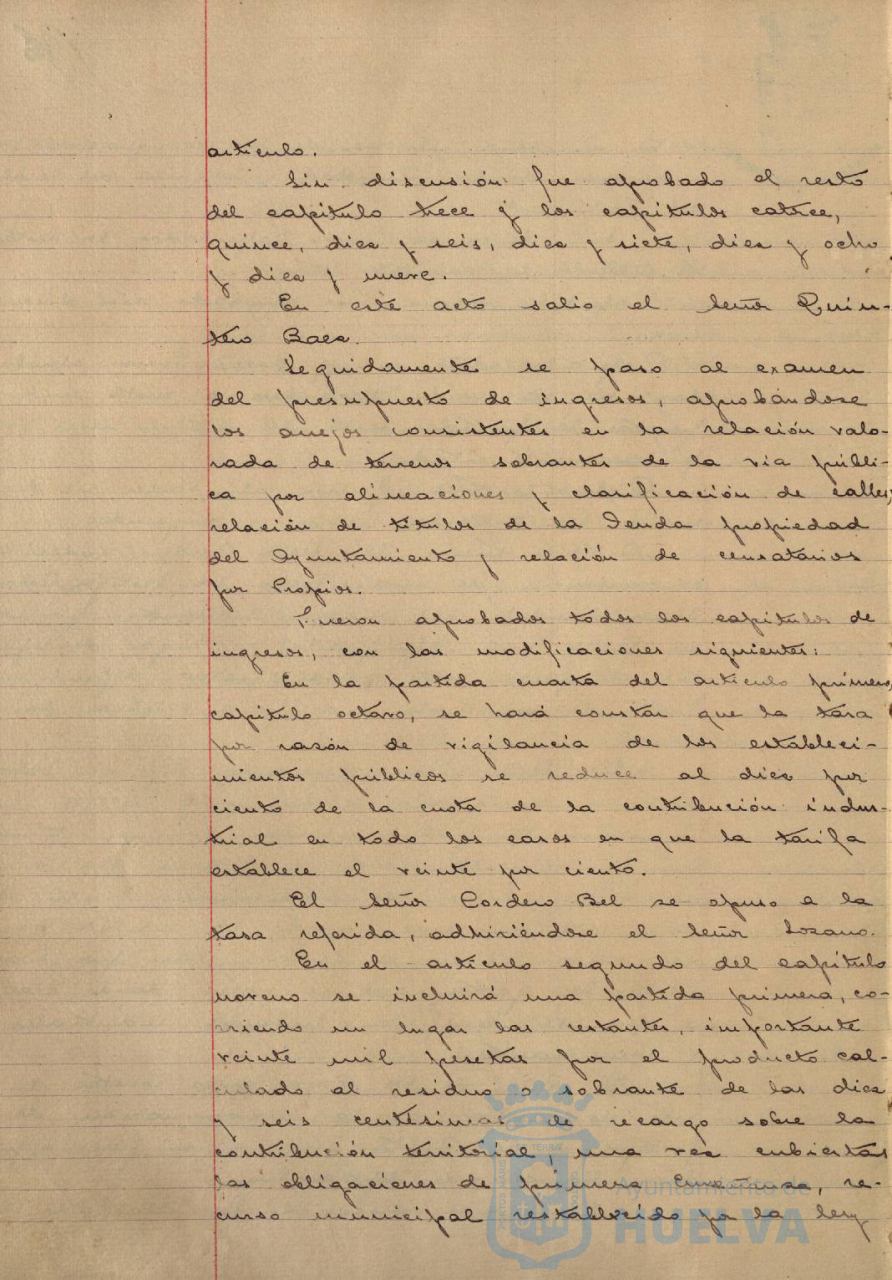 artículo.
Sin discusión fue aprobado el resto
del capítulo trece y los capítulos catorce,
quince, diez y seis, diez y siete, diez y ocho
y diez y nueve.
En este acto salió el Señor Quin-
tero Baez.
Seguidamente se paso al examen
del presupuesto de ingresos, aprobándose
los anejos consistentes en la relación valo-
rada de terrenos sobrantes de la via públi-
ca por alineaciones y clarificación de calles,
relación de títulos de la Deuda propiedad
del Ayuntamiento y relación de censatarios
por Propios.
Fueron aprobados todos los capítulos de
ingresos, con las modificaciones siguientes:
En la partida cuarta del artículo primero,
capítulo octavo, se hará constar que la tasa
por razón de vigilancia de los estableci-
mientos públicos se reduce al diez por
ciento de la cuota de la contribución indus-
trial en todo los casos en que la tarifa
establece el veinte por ciento.
El Señor Cordero Bel se opuso a la
tasa referida, adhiriéndose el Señor Lozano.
En el artículo segundo del capítulo
noveno se incluirá una partida primera, co-
rriendo un lugar las restantes, importante
veinte mil pesetas por el producto cal-
culado al residuo o sobrante de las diez
y seis centésimas de recargo sobre la
contribución territorial, una vez cubiertas
las obligaciones de primera Enseñanza, re-
curso municipal restablecido por la ley
Ayuntamiento de
HUELVA